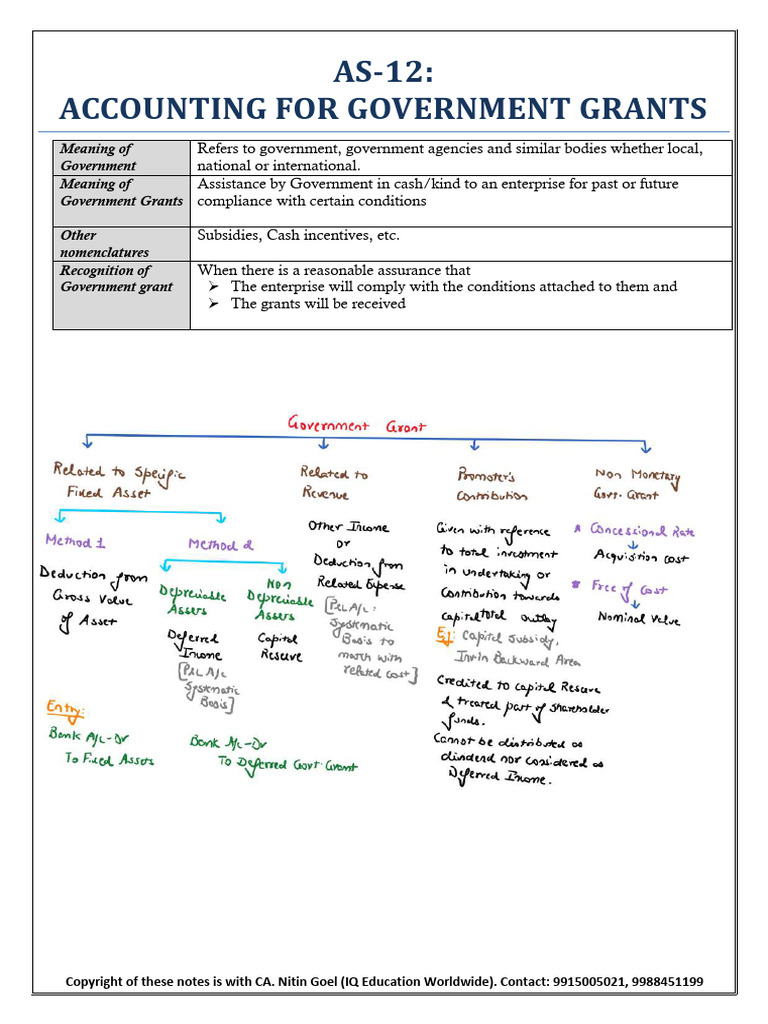 AS-12:
ACCOUNTING FOR GOVERNMENT GRANTS
Meaning of
Government
Refers to government, government agencies and similar bodies whether local,
national or international.
Meaning of
Government Grants
Assistance by Government in cash/kind to an enterprise for past or future
compliance with certain conditions
Other
nomenclatures
Subsidies, Cash incentives, etc.
Recognition of
Government grant
When there is a reasonable assurance that
➢ The enterprise will comply with the conditions attached to them and
➢ The grants will be received
Government Grant
Related to Specific
Fixed Asset
Method 1
Deduction from
Gross Value
of Asset
Entry:
Bank A/c-Dr
To Fixed Assets
Method 2
Depreciable
Assets
Deferred
Income
[P&L A/c
Systematic
Basis]
Non
Depreciable
Assets
Capital
Reserve
Bank A/c-Dr
To Deferred Govt. Grant
Related to
Revenue
Other Income
or
Deduction from
Related Expense
[P&L A/c:
Systematic
Basis to
match with
related cost]
Promoter's
Contribution
Given with reference
to total investment
in undertaking or
Contribution towards
capital total outlay
Eg: Capital Subsidy,
Inv. in Backward Area
Credited to Capital Reserve
& treated part of shareholder
funds.
Cannot be distributed as
dividend nor considered as
Deferred Income.
Non Monetary
Govt. Grant
* Concessional Rate
Acquisition cost
* Free of Cost
Nominal Value
Copyright of these notes is with CA. Nitin Goel (IQ Education Worldwide). Contact: 9915005021, 9988451199